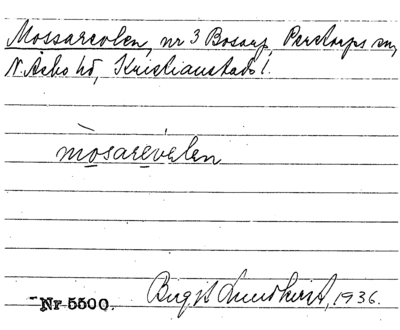 Mossarevlen, nr 3 Bosarp, Perstorps sn,
N. Åsbo hd, Kristianstads l.
mòsarevelen
Nr 5500.
Birgit Lundkvist, 1936.